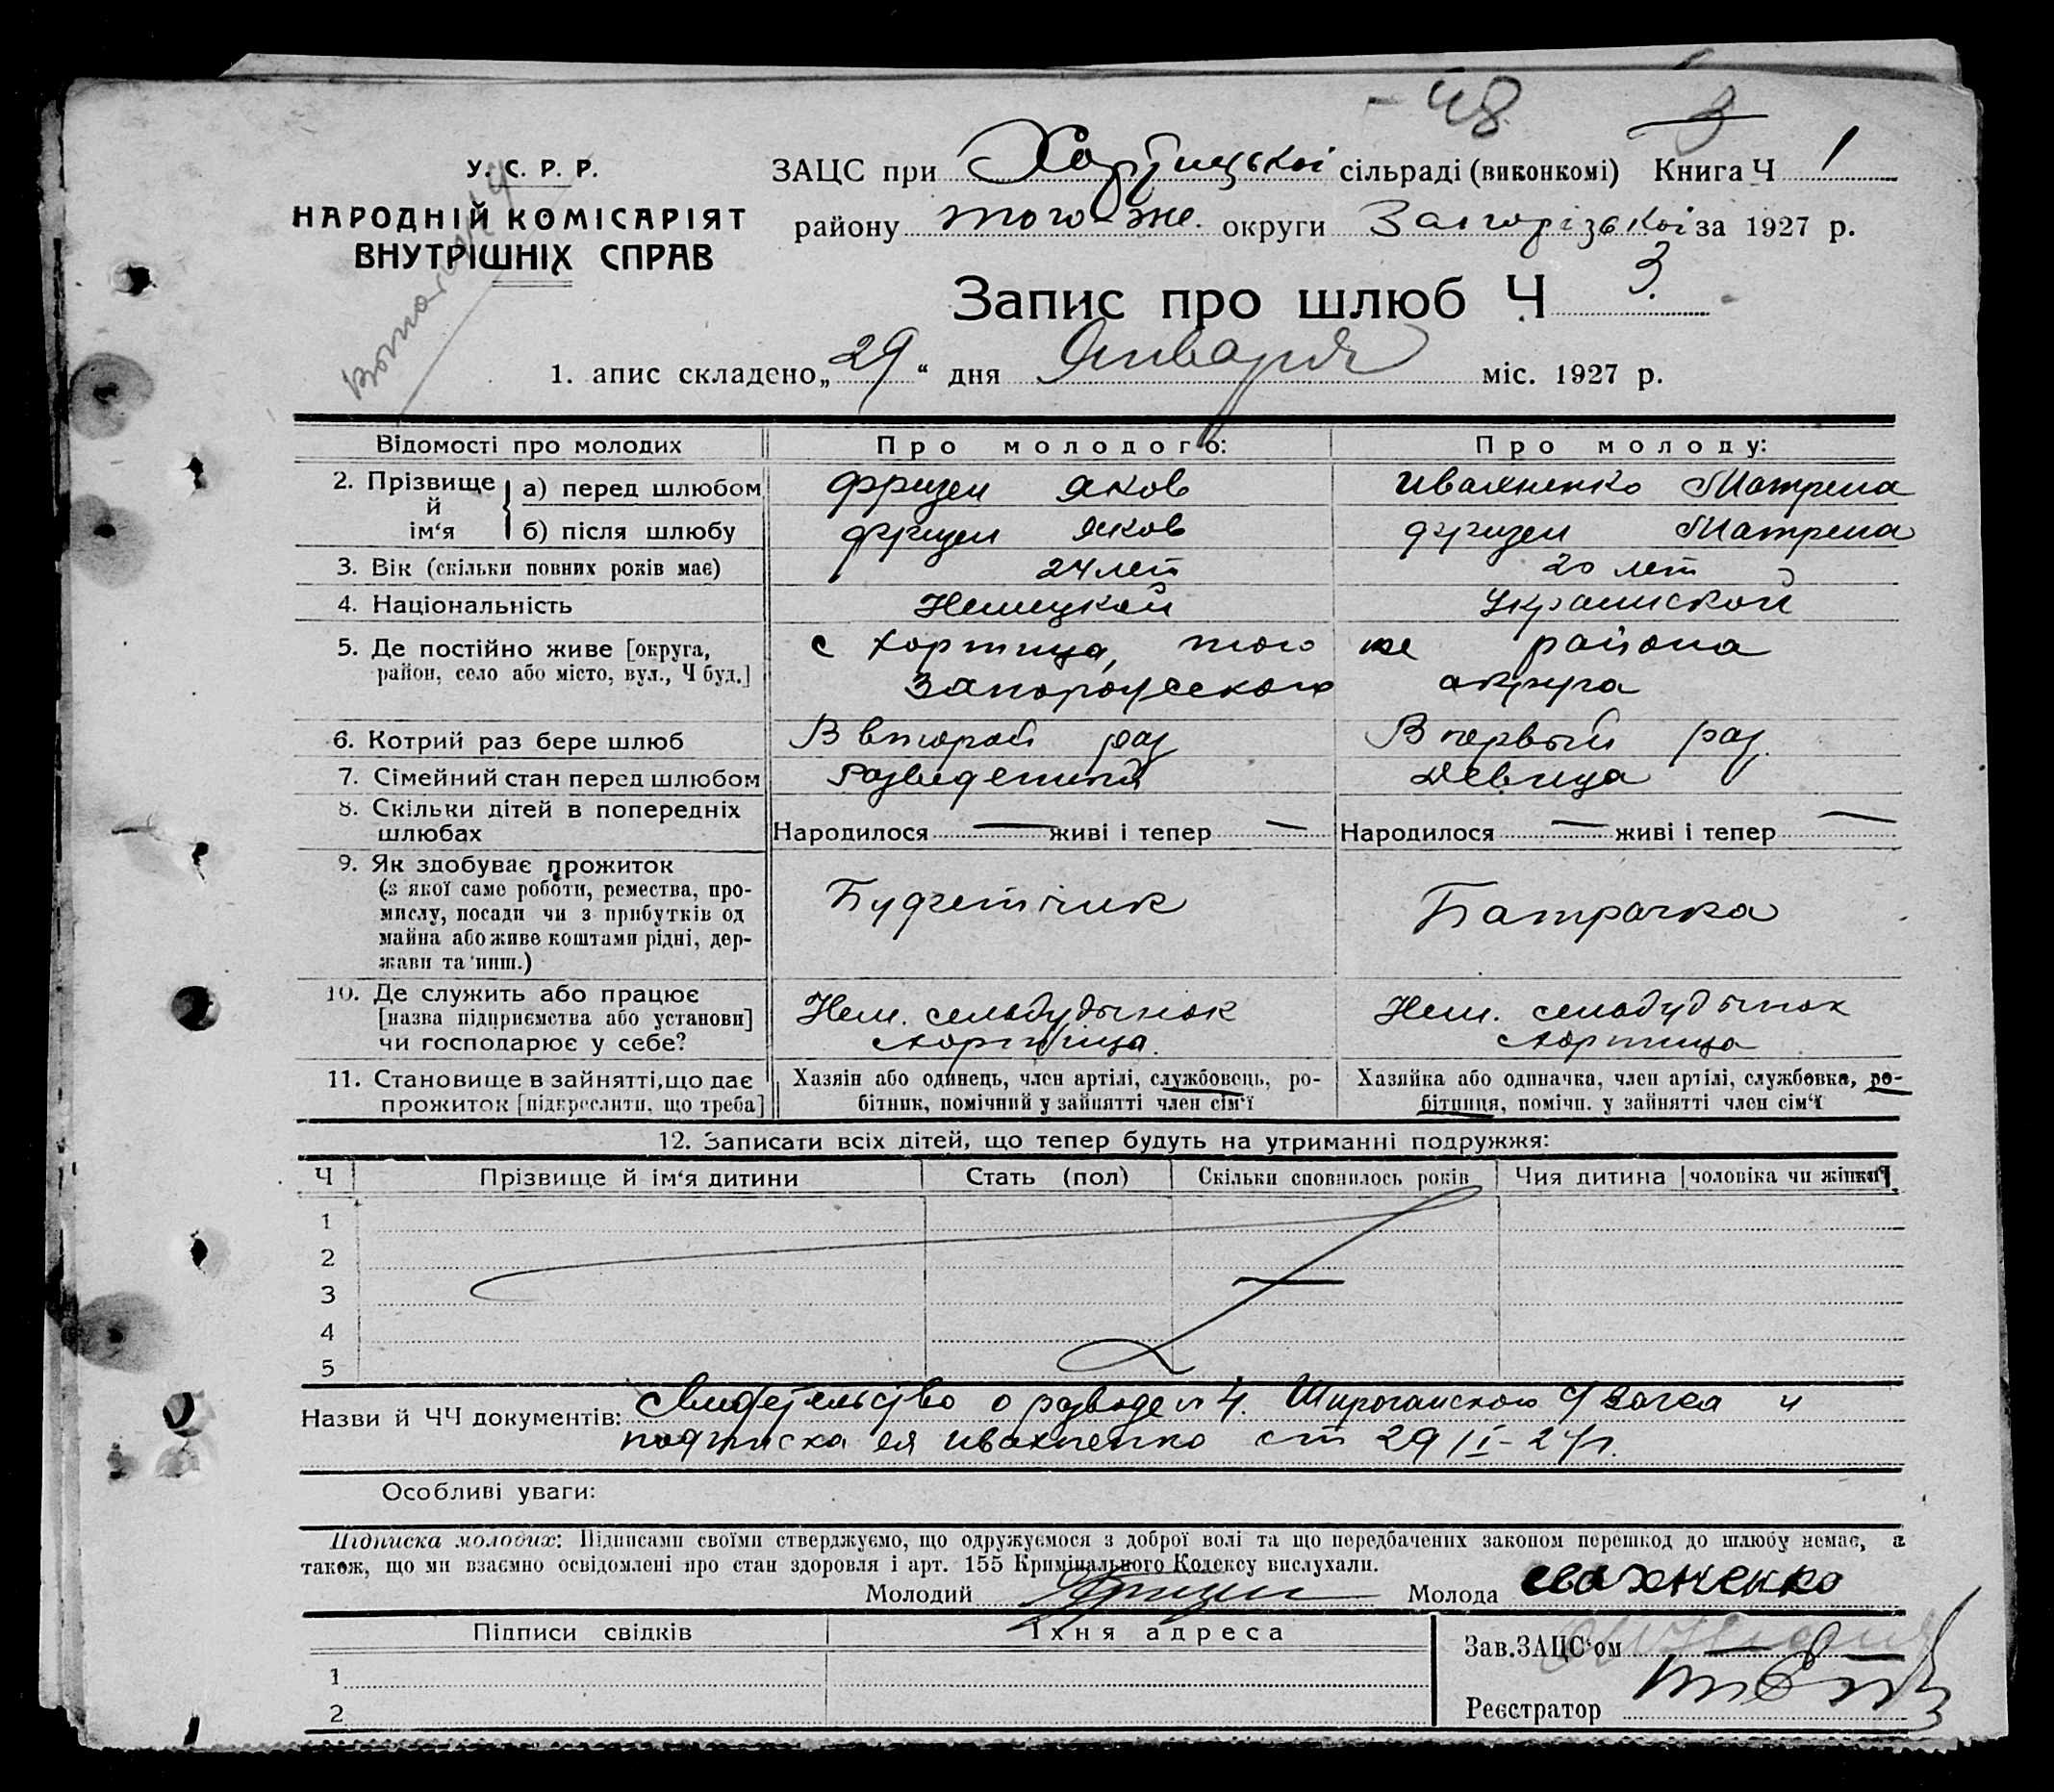 - 48 3
У. С. Р. Р.
НАРОДНІЙ КОМІСАРІЯТ
ВНУТРІШНІХ СПРАВ
ЗАЦС при Хортицькоі сільраді (виконкомі) Книга Ч 1
району того-же. округи Запорізькоі за 1927 р.
Запис про шлюб Ч 3.
1. апис складено „29“ дня Января міс. 1927 р.
Відомості про молодих Про молодого: Про молоду:
2. Прізвище й ім‘я
а) перед шлюбом Фризен Яков Ивахненко Матрена
б) після шлюбу Фризен Яков Фризен Матрена
3. Вік (скільки повних років має) 24 лет 20 лет
4. Національність Немецкой Украинской
5. Де постійно живе [округа, с Хортица, того же района
район, село або місто, вул., Ч буд.] Запорожского округа
6. Котрий раз бере шлюб В второй раз В первый раз.
7. Сімейний стан перед шлюбом Разведенный Девица
8. Скільки дітей в попередніх
шлюбах Народилося — живі і тепер — Народилося — живі і тепер —
9. Як здобуває прожиток
(з якої саме роботи, ремества, про-
мислу, посади чи з прибутків од
майна або живе коштами рідні, дер-
жави та инш.)
Батрачка
10. Де служить або працює
[назва підприємства або установи]
чи господарює у себе?
Нем. Нем.
Хортица. Хортица
11. Становище в зайнятті, що дає Хазяїн або одинець, член артілі, службовець, ро- Хазяйка або одиначка, член артілі, службовка, ро-
прожиток [підкреслити, що треба] бітник, помічний у зайнятті член сім‘ї бітниця, помічн. у зайнятті член сім‘ї
12. Записати всіх дітей, що тепер будуть на утриманні подружжя:
Ч Прізвище й ім‘я дитини Стать (пол) Скільки сповнилось років Чия дитина [чоловіка чи жінки]
1
2
3
4
5
Назви й ЧЧ документів: Свидетельство о разводе № 4. загса и
подписка Ивахненко от 29/I-27 г.
Особливі уваги:
Підписка молодих: Підписами своїми стверджуємо, що одружуємося з доброї волі та що передбачених законом перешкод до шлюбу немає, а
також, що ми взаємно освідомлені про стан здоровля і арт. 155 Кримінального Кодексу вислухали.
Молодий Фризен Молода Ивахненко
Підписи свідків Їхня адреса
Зав. ЗАЦС‘ом
1
Реєстратор
2